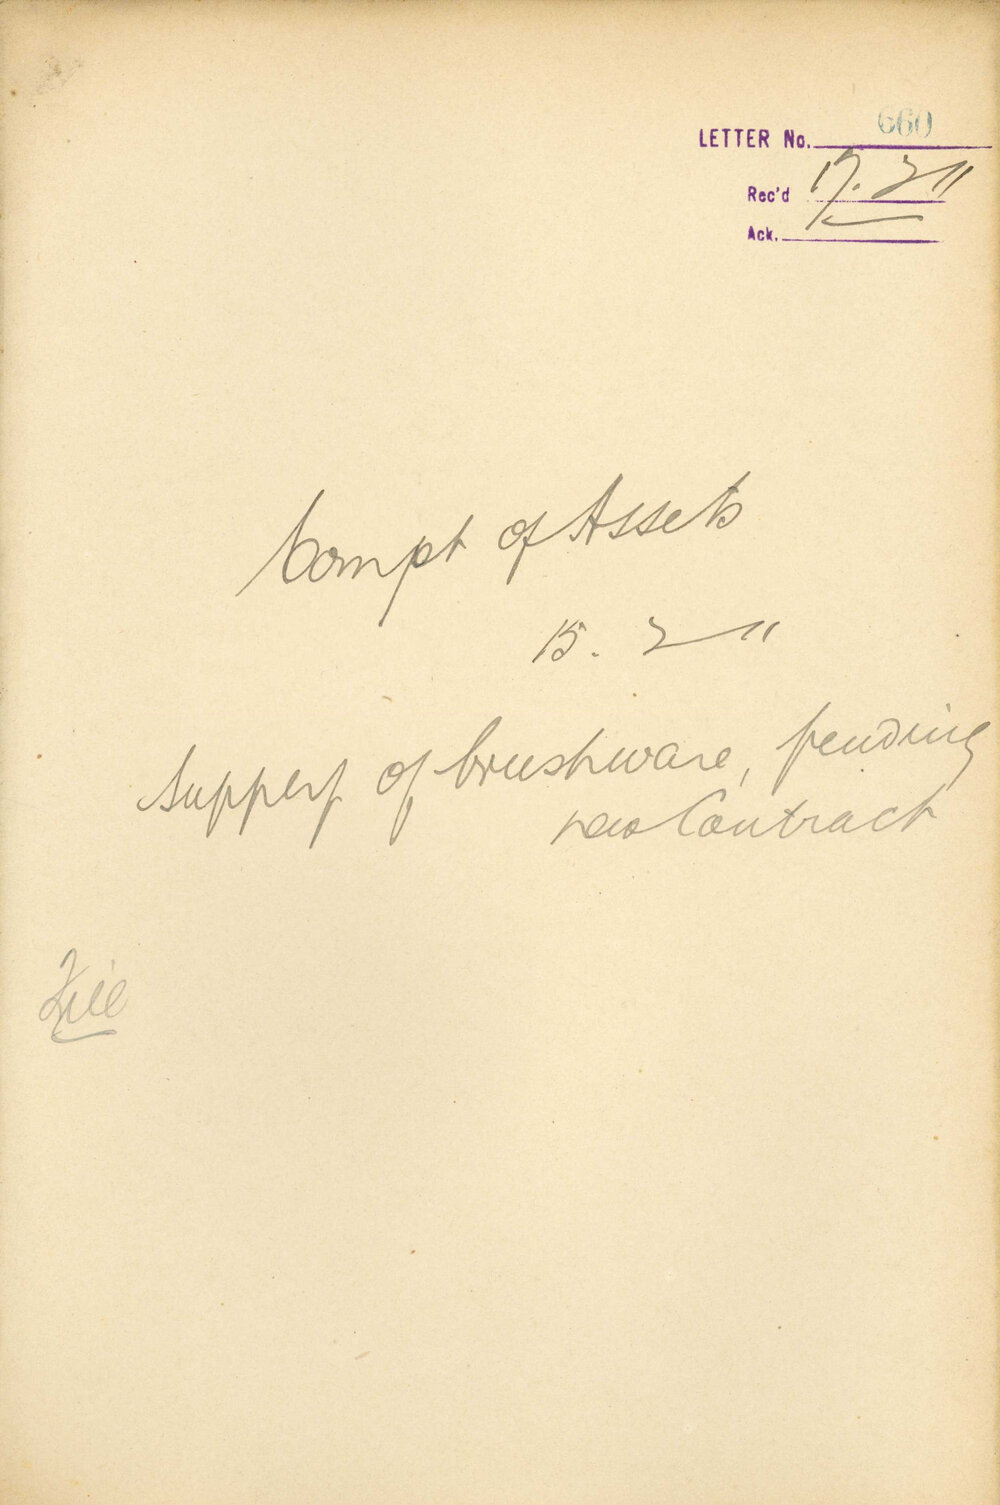 LETTER No. 660
Rec'd 17. 2 11
Ack.
Compt of Assets
15. 2 11
Supply of brushware, pending
new Contract
File